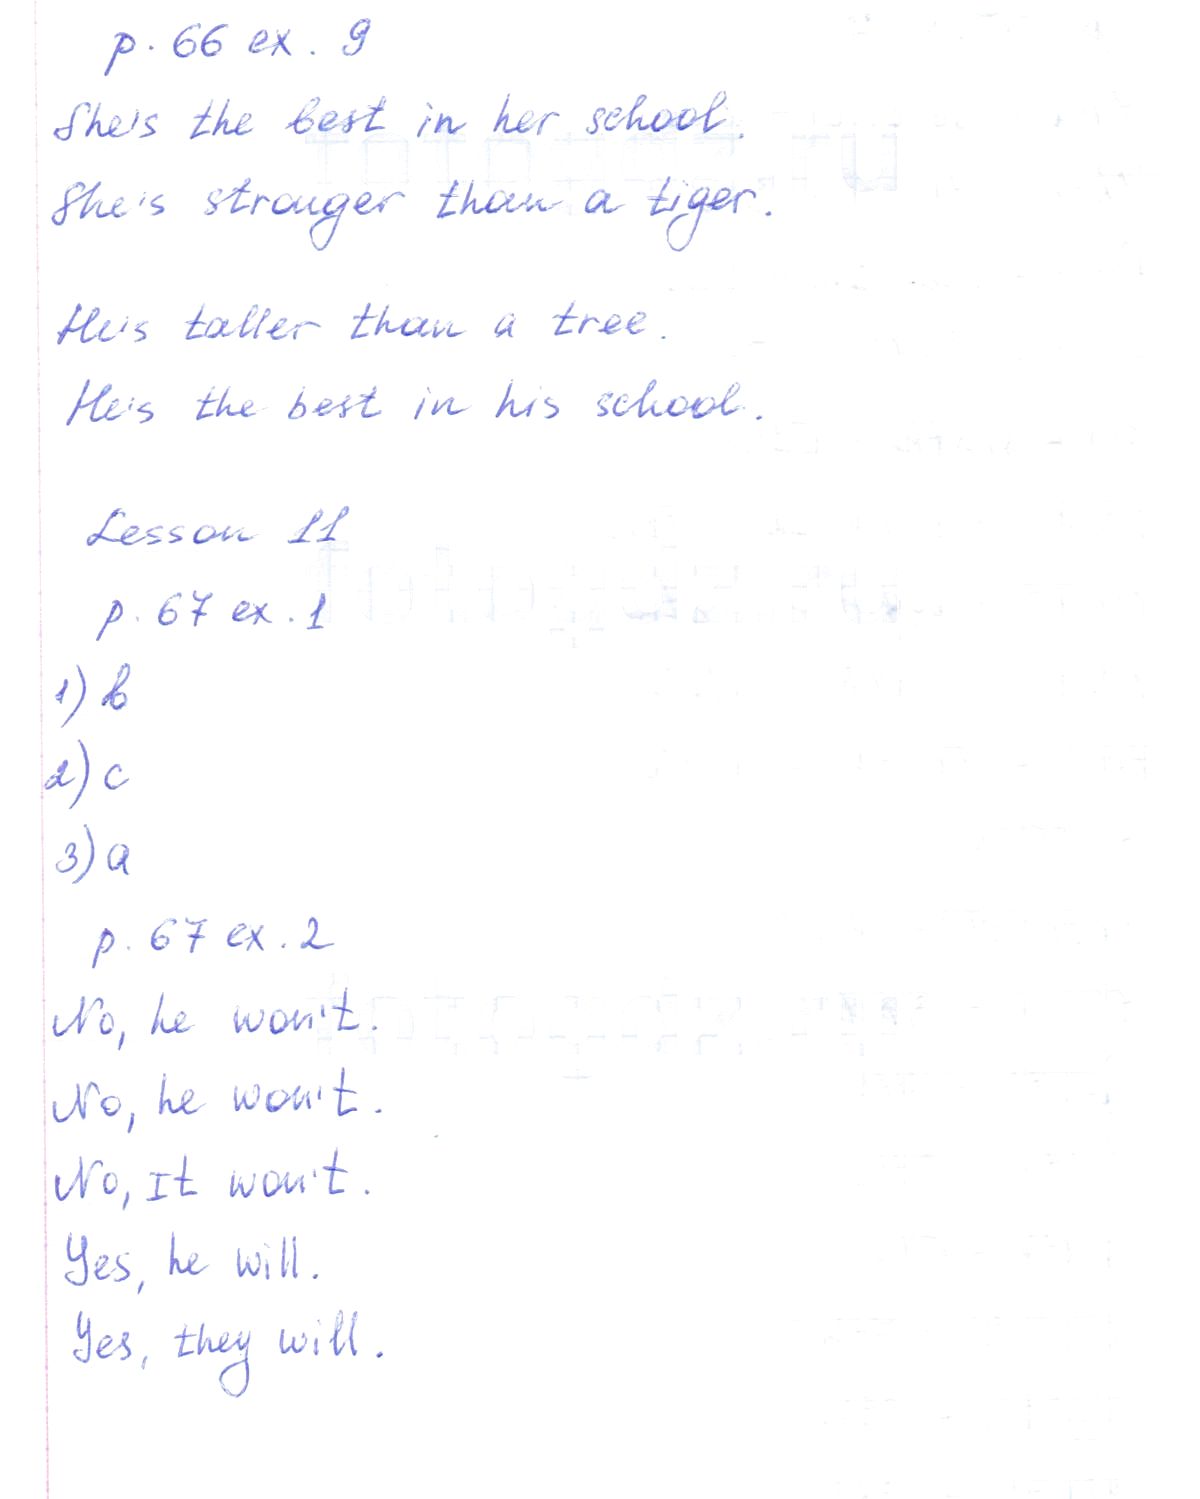 p. 66 ex. 9
She's the best in her school.
She's stronger than a tiger.
He's taller than a tree.
He's the best in his school.
Lesson 11
p. 67 ex. 1
1) b
2) c
3) a
p. 67 ex. 2
No, he won't.
No, he won't.
No, It won't.
Yes, he will.
Yes, they will.